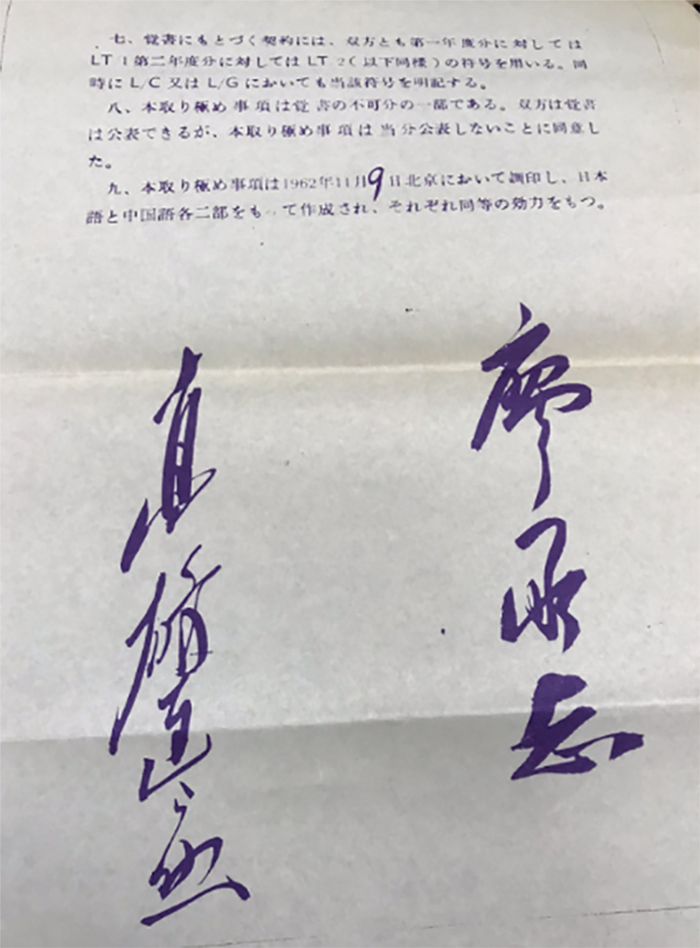 七、覚書にもとづく契約には、双方とも第一年度分に対しては
LT 1 第二年度分に対しては LT 2 ( 以下同様 ) の符号を用いる。同
時に L/C 又は L/G においても当該符号を明記する。
八、本取り極め事項は覚書の不可分の一部である。双方は覚書
は公表できるが、本取り極め事項は当分公表しないことに同意し
た。
九、本取り極め事項は1962年11月9日北京において調印し、日本
語と中国語各二部をもって作成され、それぞれ同等の効力をもつ。
廖承志
高碕達之助